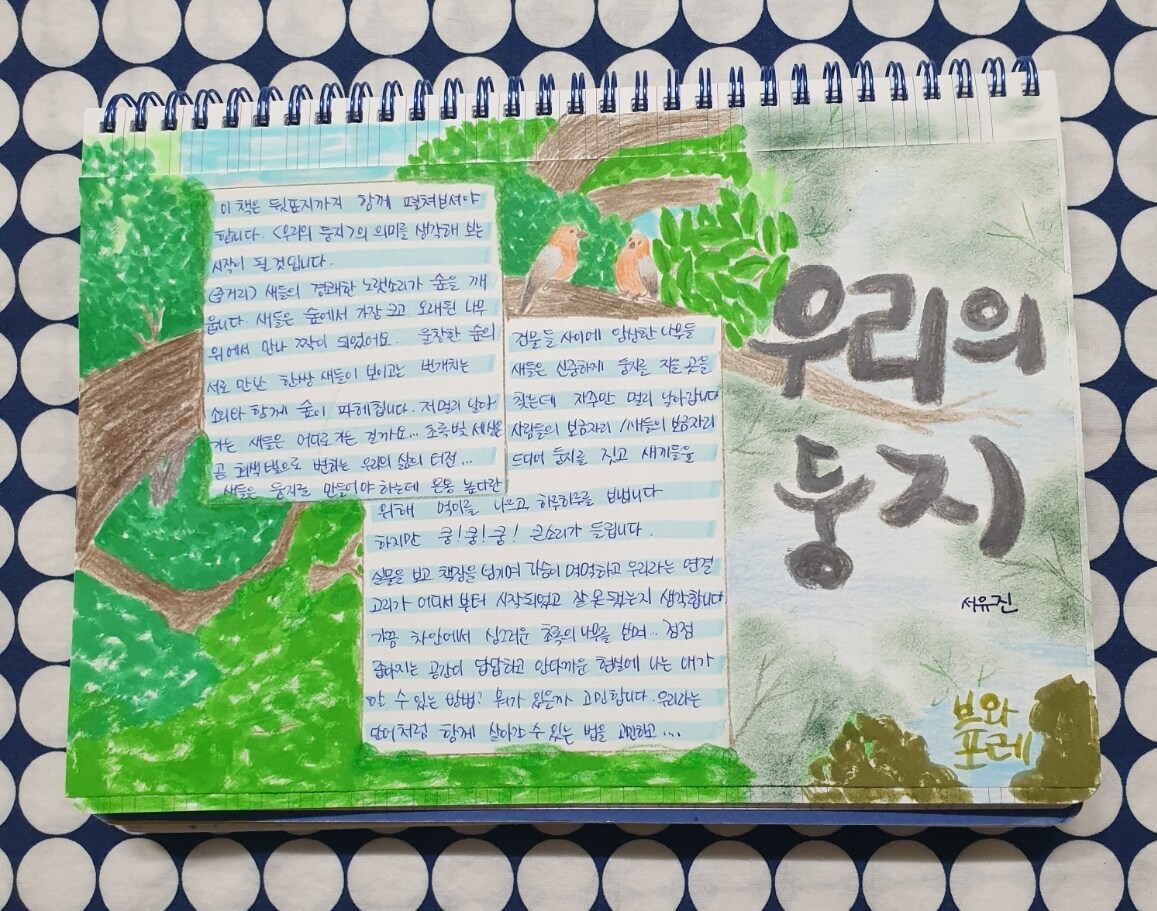 이 책은 뒷표지까지 함께 펼쳐보셔야
합니다. <우리의 둥지>의 의미를 생각해 보는
시작이 될 것입니다.
(줄거리) 새들의 경쾌한 노랫소리가 숲을 깨
웁니다. 새들은 숲에서 가장 크고 오래된 나무
위에서 만나 짝이 되었어요. 울창한 숲의
서로 만난 한쌍 새들이 보이고는 번개치는
소리와 함께 숲이 파헤칩니다. 저멀리 날아
가는 새들은 어디로 가는 걸까요... 초록빛 세상은
곧 회색빛으로 변하는 우리의 삶의 터전...
새들은 둥지를 만들어야 하는데 온통 높다란
건물들 사이에 앙상한 나무들
새들은 신중하게 둥지를 지을 곳을
찾는데 자주만 멀리 날아갑니다
사람들의 보금자리 / 새들의 보금자리
드디어 둥지를 짓고 새끼들을
위해 먹이를 나르고, 하루하루를 보냅니다
하지만 쿵! 쿵! 쿵! 큰소리가 들립니다.
보고 책장을 넘기며 가슴이 먹먹하고 우리라는 연결
고리가 어디서부터 시작되었고 잘못됐는지 생각합니다
가끔 차안에서 싱그러운 초록의 나무를 보며.. 점점
좁아지는 공간이 답답하고 안타까운 현실에 나는 내가
할 수 있는 방법? 뭐가 있을까 고민합니다. 우리라는
단어처럼 함께 살아갈 수 있는 법을 고민하고 ...
우리의
둥지
서유진
브와
포레